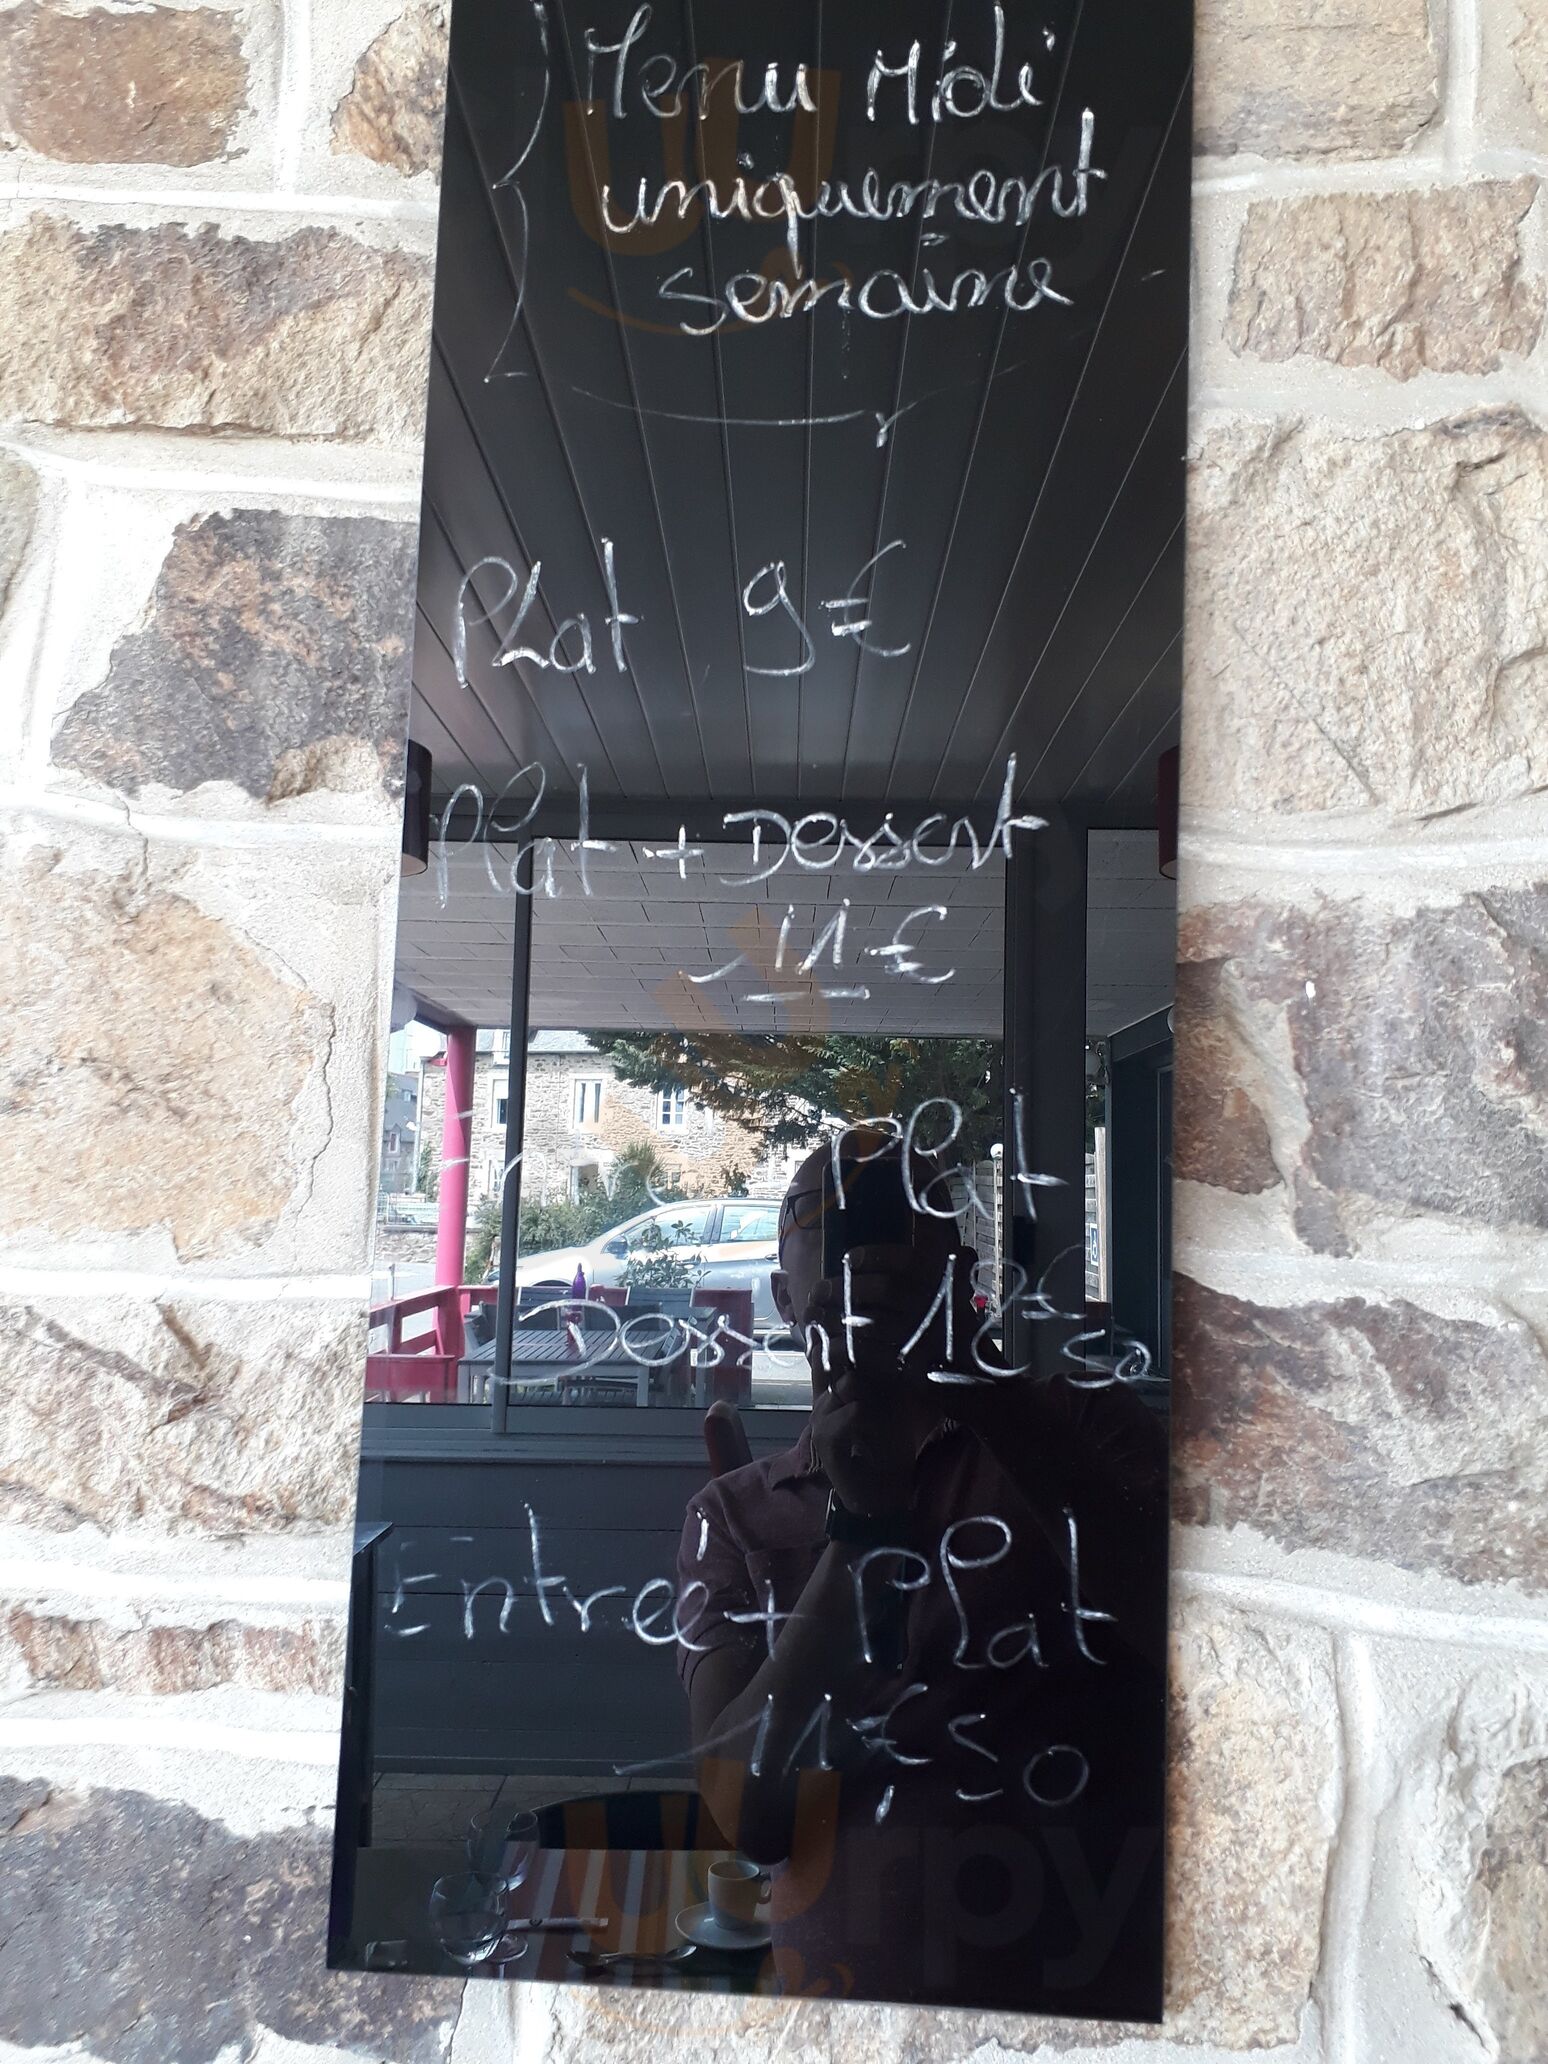 Menu Midi
uniquement
semaine
Plat 9€
Plat + Dessert
11€
Plat
Dessert 12€50
Entrée + Plat
11€,50